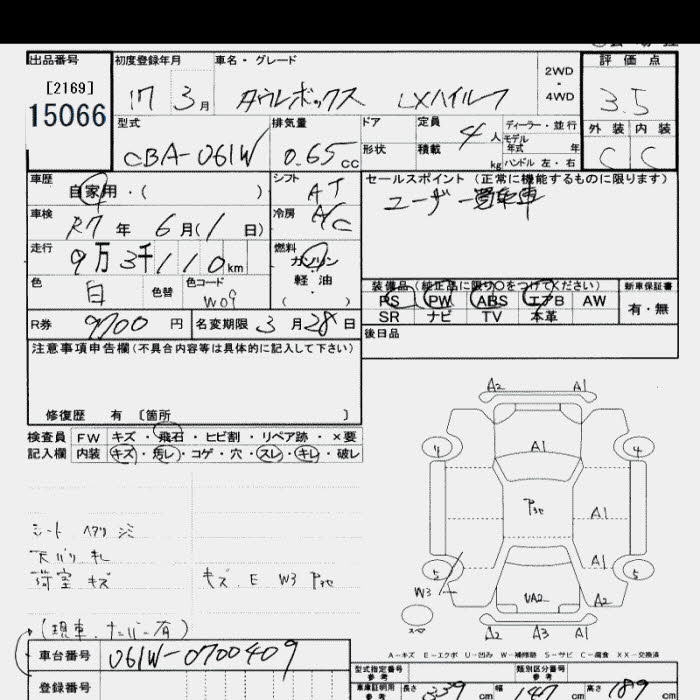 出品番号 初度登録年月 車名・グレード 2WD・4WD 評価点
[2169]
15066 17 3月 タウンボックス LXハイルーフ 3.5
型式 排気量 ドア 形状 定員 4人 積載 kg ディーラー・並行 モデル年式 年 ハンドル 左・右 外装 内装
CBA-U61W 0.65 CC C C
車歴 自家用・( ) シフト AT セールスポイント (正常に機能するものに限ります)
車検 R7年 6月(1日) 冷房 A/C ユーザー買取車
走行 9万3千110km 燃料 ガソリン 軽油 ( )
色 白 色替 色コード W09
装備品(純正品に限り○をつけてください) 新車保証書
PS PW ABS エアB AW 有・無
SR ナビ TV 本革
R券 9700円 名変期限 3月28日 後日品
注意事項申告欄(不具合内容等は具体的に記入して下さい)
修復歴 有 〔箇所 〕
検査員 FW キズ・飛石・ヒビ割・リペア跡・×要
記入欄 内装 キズ・汚レ・コゲ・穴・スレ・キレ・破レ
シート ヘタリ シミ
天バリ キレ
荷室 キズ
キズ E W3 Pキセ
(現車、ナンバー有)
A2 A1
A1
A1
A1
UA2 A2
W3
スペア
A2 A3 A1
A-キズ E-エクボ U-凹み W-補修跡 S-サビ C-腐食 XX-交換済
車台番号 U61W-0700409
登録番号
型式指定番号 参考 類別区分番号 参考
車庫証明用 参考 長さ 339cm 幅 147cm 高さ 189cm